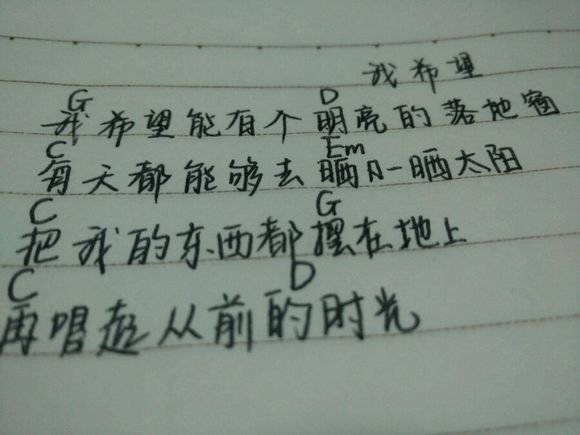 我希望
G D
我希望能有个明亮的落地窗
C Em
每天都能够去晒一晒太阳
C G
把我的东西都摆在地上
C D
再唱起从前的时光